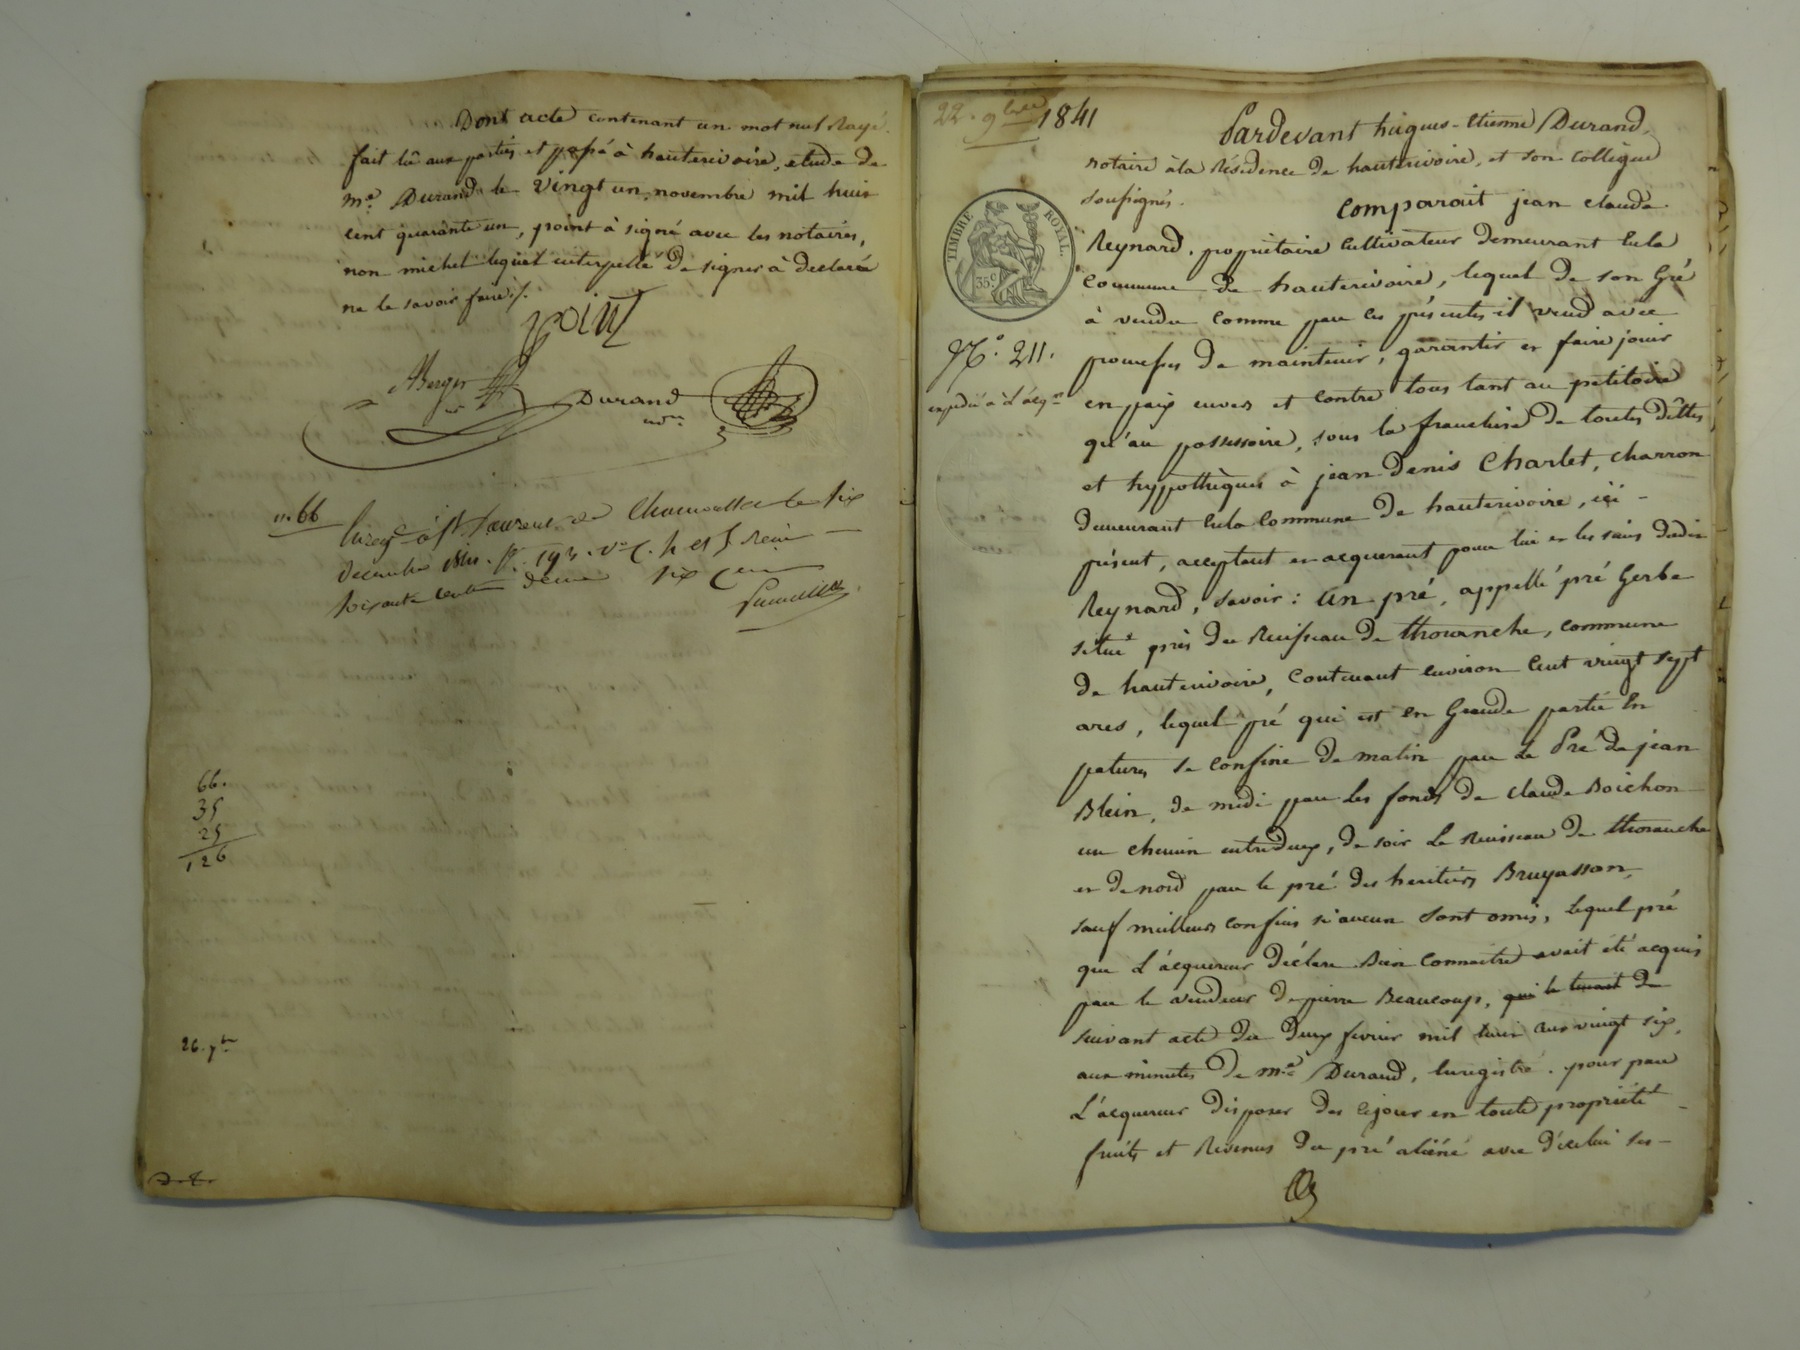 Dont acte contenant un mot nul Rayé.
fait lû aux parties et passé à hauterivoire, étude de
me. Durand le vingt un novembre mil huit
cent quarante un, point à signé avec les notaires,
non michel lequel interpellé de signer à declaré
ne le savoir faire ./.
point
Berger
Durand
nre.
n. 66
Enreg. à St Laurent de Chamousset le six
decembre 1841. fo. 193. vo C. 4 et 5 Reçu
soixante centimes decime six cent
66.
35
25
126
26. 7bre
22. 9bre 1841
Pardevant hugues-Etienne Durand,
notaire à la Résidence de hauterivoire, et son Collègue
soussignés.
Comparait jean claude
Reynard, propriétaire Cultivateur demeurant En la
Commune de hauterivoire, lequel de son Gré
à vendu comme par ces présentes il vend avec
promesses de maintenir, garantir et faire jouir
en paix envers et contre tous tant au petitoire
qu'au possessoire, sous la franchise de toutes dêttes
et hyppothèques à jean Denis Charlet, charron
demeurant En la Commune de hauterivoire, ici -
présent, acceptant et acquerant pour lui et les siens dudit
Reynard, savoir : un pré, appellé pré Gerbe
situé près du Ruisseau de thoranche, commune
de hauterivoire, Contenant environ Cent vingt sept
ares, lequel pré qui est en Grande partie En
patures se confine de matin par Le Pré de jean
Blein, de midi par Les fonds de claude Boichon
un chemin entredeux, de soir Le Ruisseau de thoranche
et de nord par le pré des heritiers Bruyasson,
sauf meilleurs confins si aucun sont omis, lequel pré
que L'acquereur déclare Bien Connaitre avait été acquis
par le vendeur de pierre Beaucoup, qui le tenait de
suivant acte du deux fevrier mil huit cent vingt six,
aux minutes de me. Durand, Enregistré. pour par
L'acquereur disposer des cejour en toute propriété
fruits et Revenus du pré aliéné avec d'icelui ses -
TIMBRE ROYAL.
35c.
No. 211.
expedié à L'acqr.